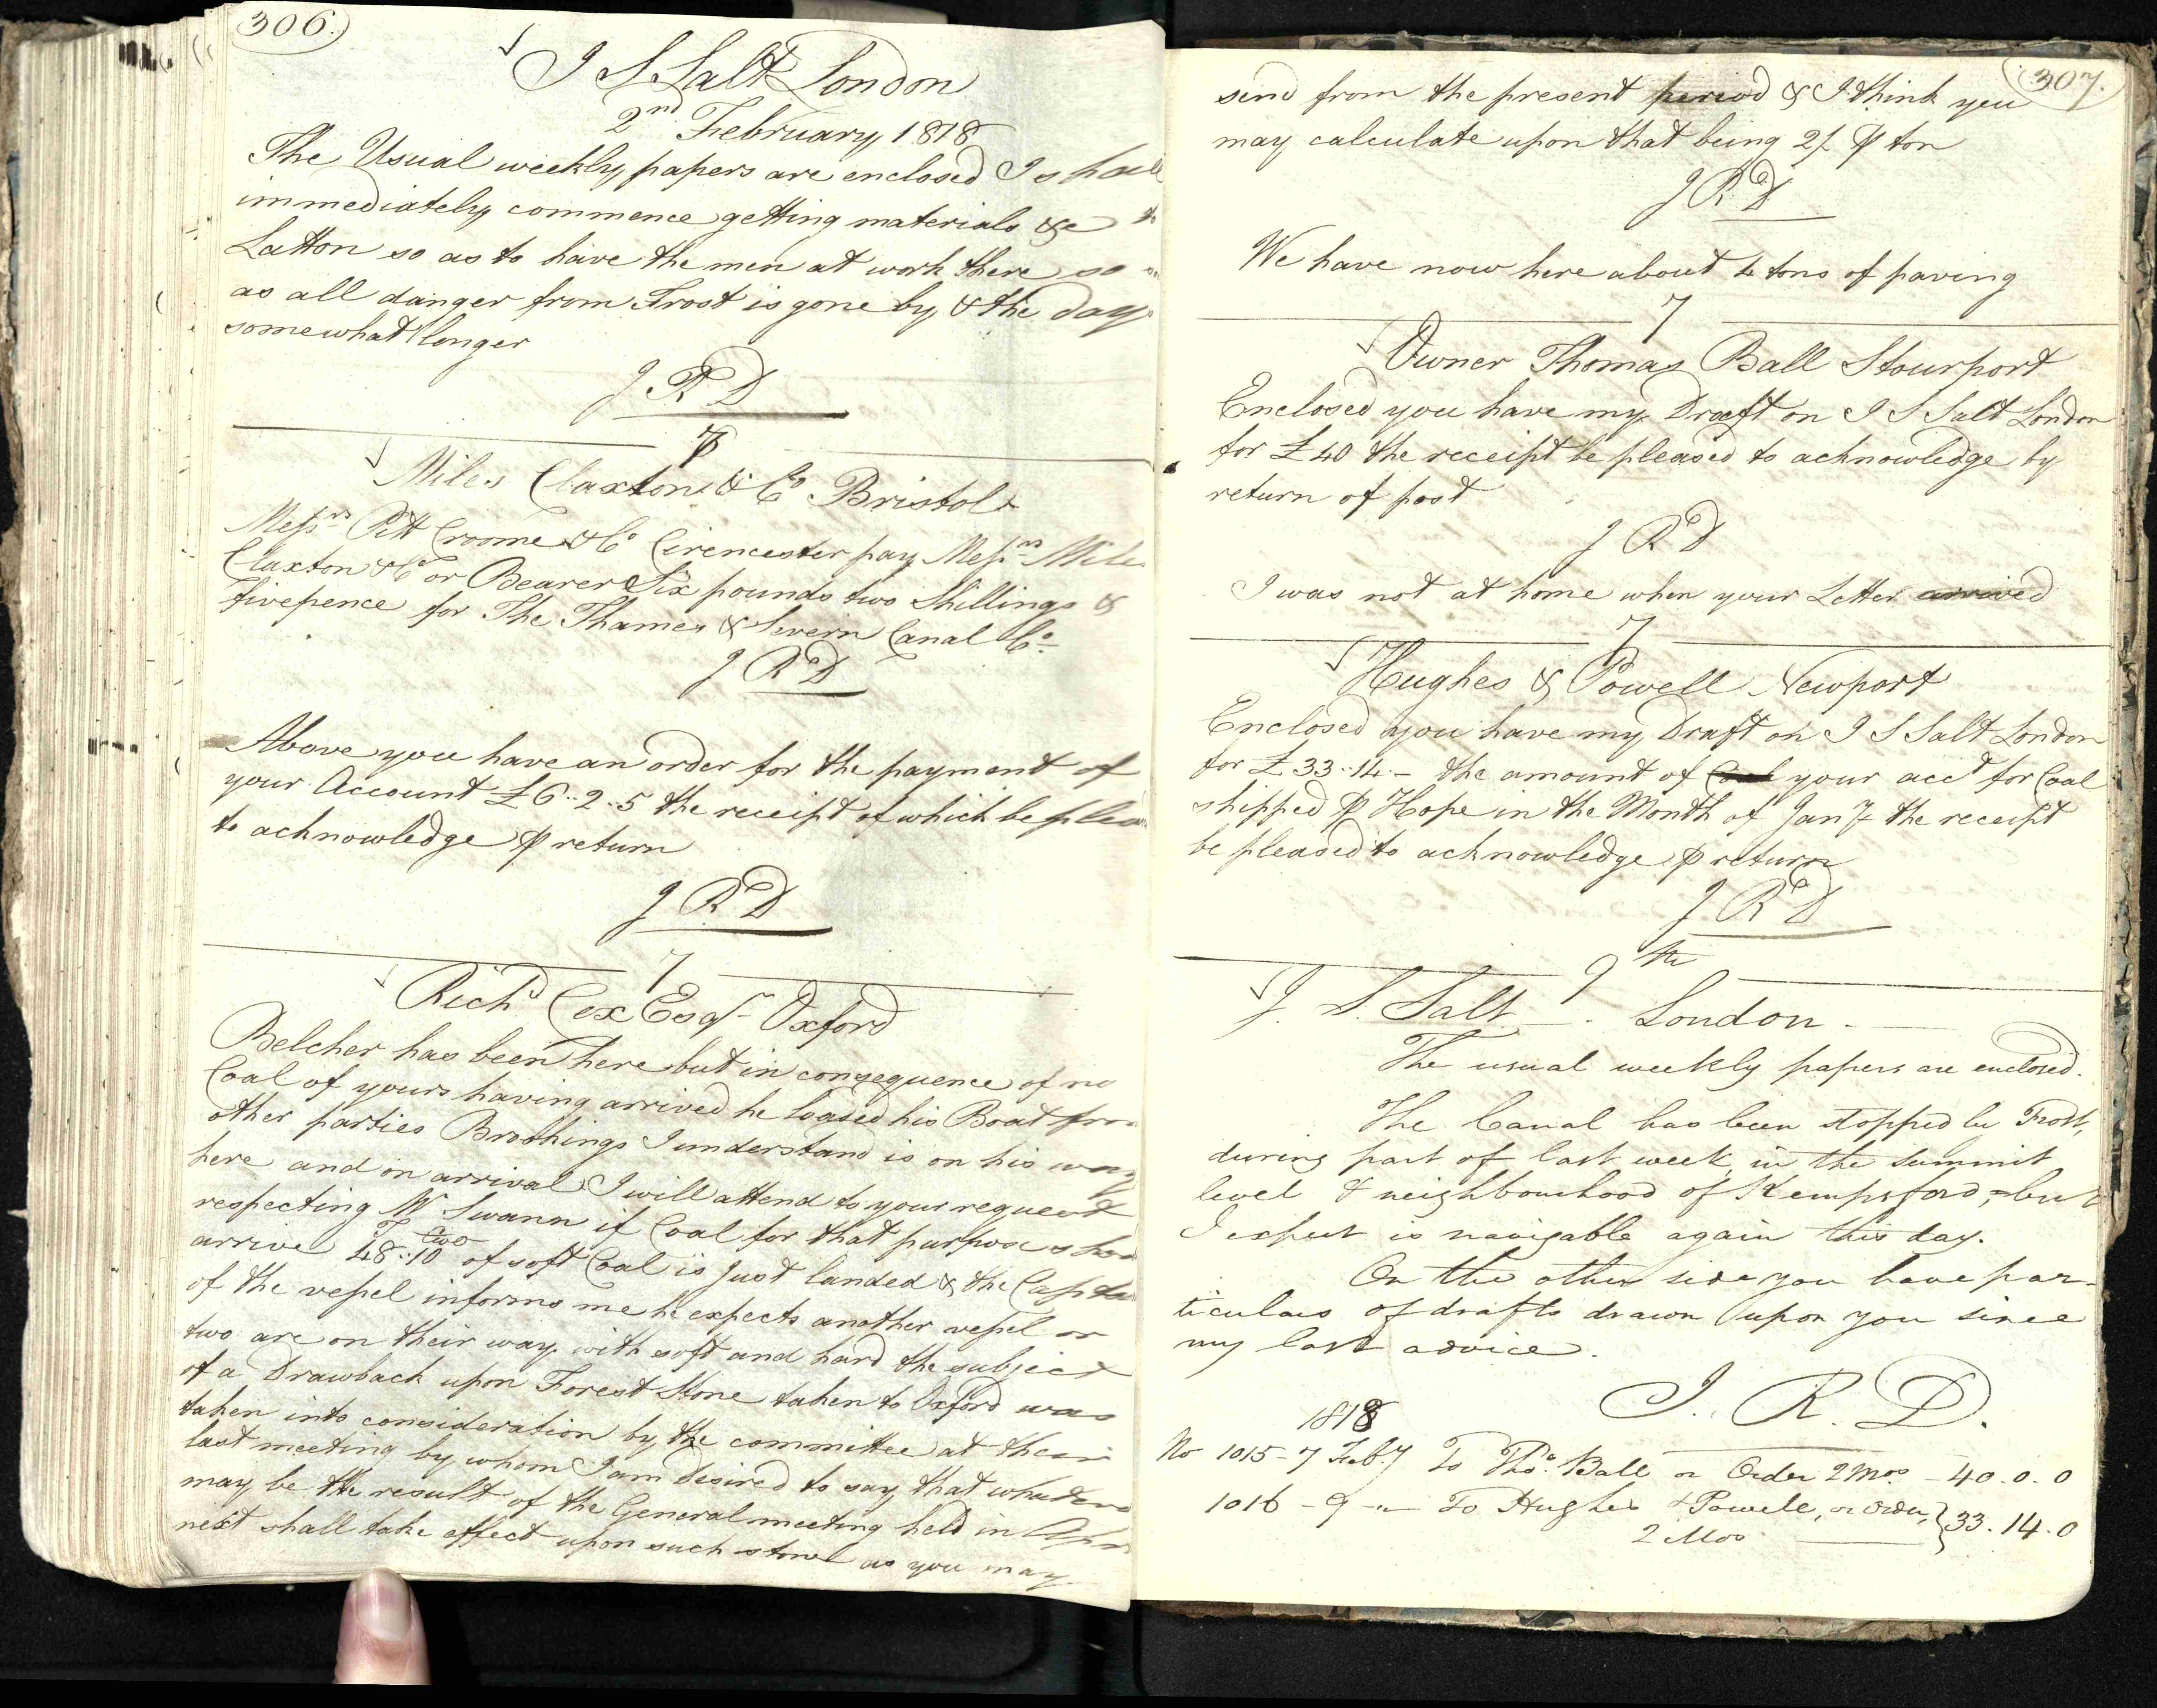 306.
I S Salt London
2nd February 1818
The Usual weekly papers are enclosed I shall
immediately commence getting materials &c to
Latton so as to have the men at work there so
as all danger from Frost is gone by & the days
somewhat longer
J R D
7
Miles Claxton & Co Bristol
Messrs Pitt Croome & Co Cirencester pay Messrs Miles
Claxton & Co or Bearer Six pounds two Shillings &
fivepence for The Thames & Severn Canal Co
J R D
Above you have an order for the payment of
your Account £6..2..5 the receipt of which be pleas
to acknowledge ⅌ return
J R D
7
Richd Cox Esqr Oxford
Belcher has been here but in consequence of no
Coal of yours having arrived he loaded his Boat from
other parties Brookings I understand is on his way
here and on arrival I will attend to your request
respecting Mr Swann if Coal for that purpose shou
arrive 48..10 of soft Coal is just landed & the Capta
T Cwo
of the vessel informs me he expects another vessel or
two are on their way with soft and hard the subject
of a Drawback upon Forest Stone taken to Oxford was
taken into consideration by the committee at their
last meeting by whom I am desired to say that whatever
may be the result of the General meeting held in Apr
next shall take effect upon such stone as you may
307.
send from the present period & I think you
may calculate upon that being 2/ ⅌ ton
J R D
We have now here about 4 tons of paving
7
Owner Thomas Ball Stourport
Enclosed you have my Draft on I S Salt London
for £40 the receipt be pleased to acknowledge by
return of post
J R D
I was not at home when your Letter arrived
7
Hughes & Powell Newport
Enclosed you have my Draft on I S Salt London
for £33..14.- the amount of Coal your acct for Coal
shipped ⅌ Hope in the Month of Jany the receipt
be pleased to acknowledge ⅌ return
J R D
9th
J. S. Salt - London -
The usual weekly papers are enclosed.
The Canal has been stopped by Frost,
during part of last week in the summit
level & neighbourhood of Kempsford, but
I expect is navigable again this day.
On the other side you have par-
ticulars of drafts drawn upon you since
my last advice.
J. R. D.
1818
No 1015 - 7 Feby To Thos. Ball or Order 2 Mos - 40.0.0
1016 - 9 - " To Hughes & Powell, or order, } 33.14.0
2 Mos